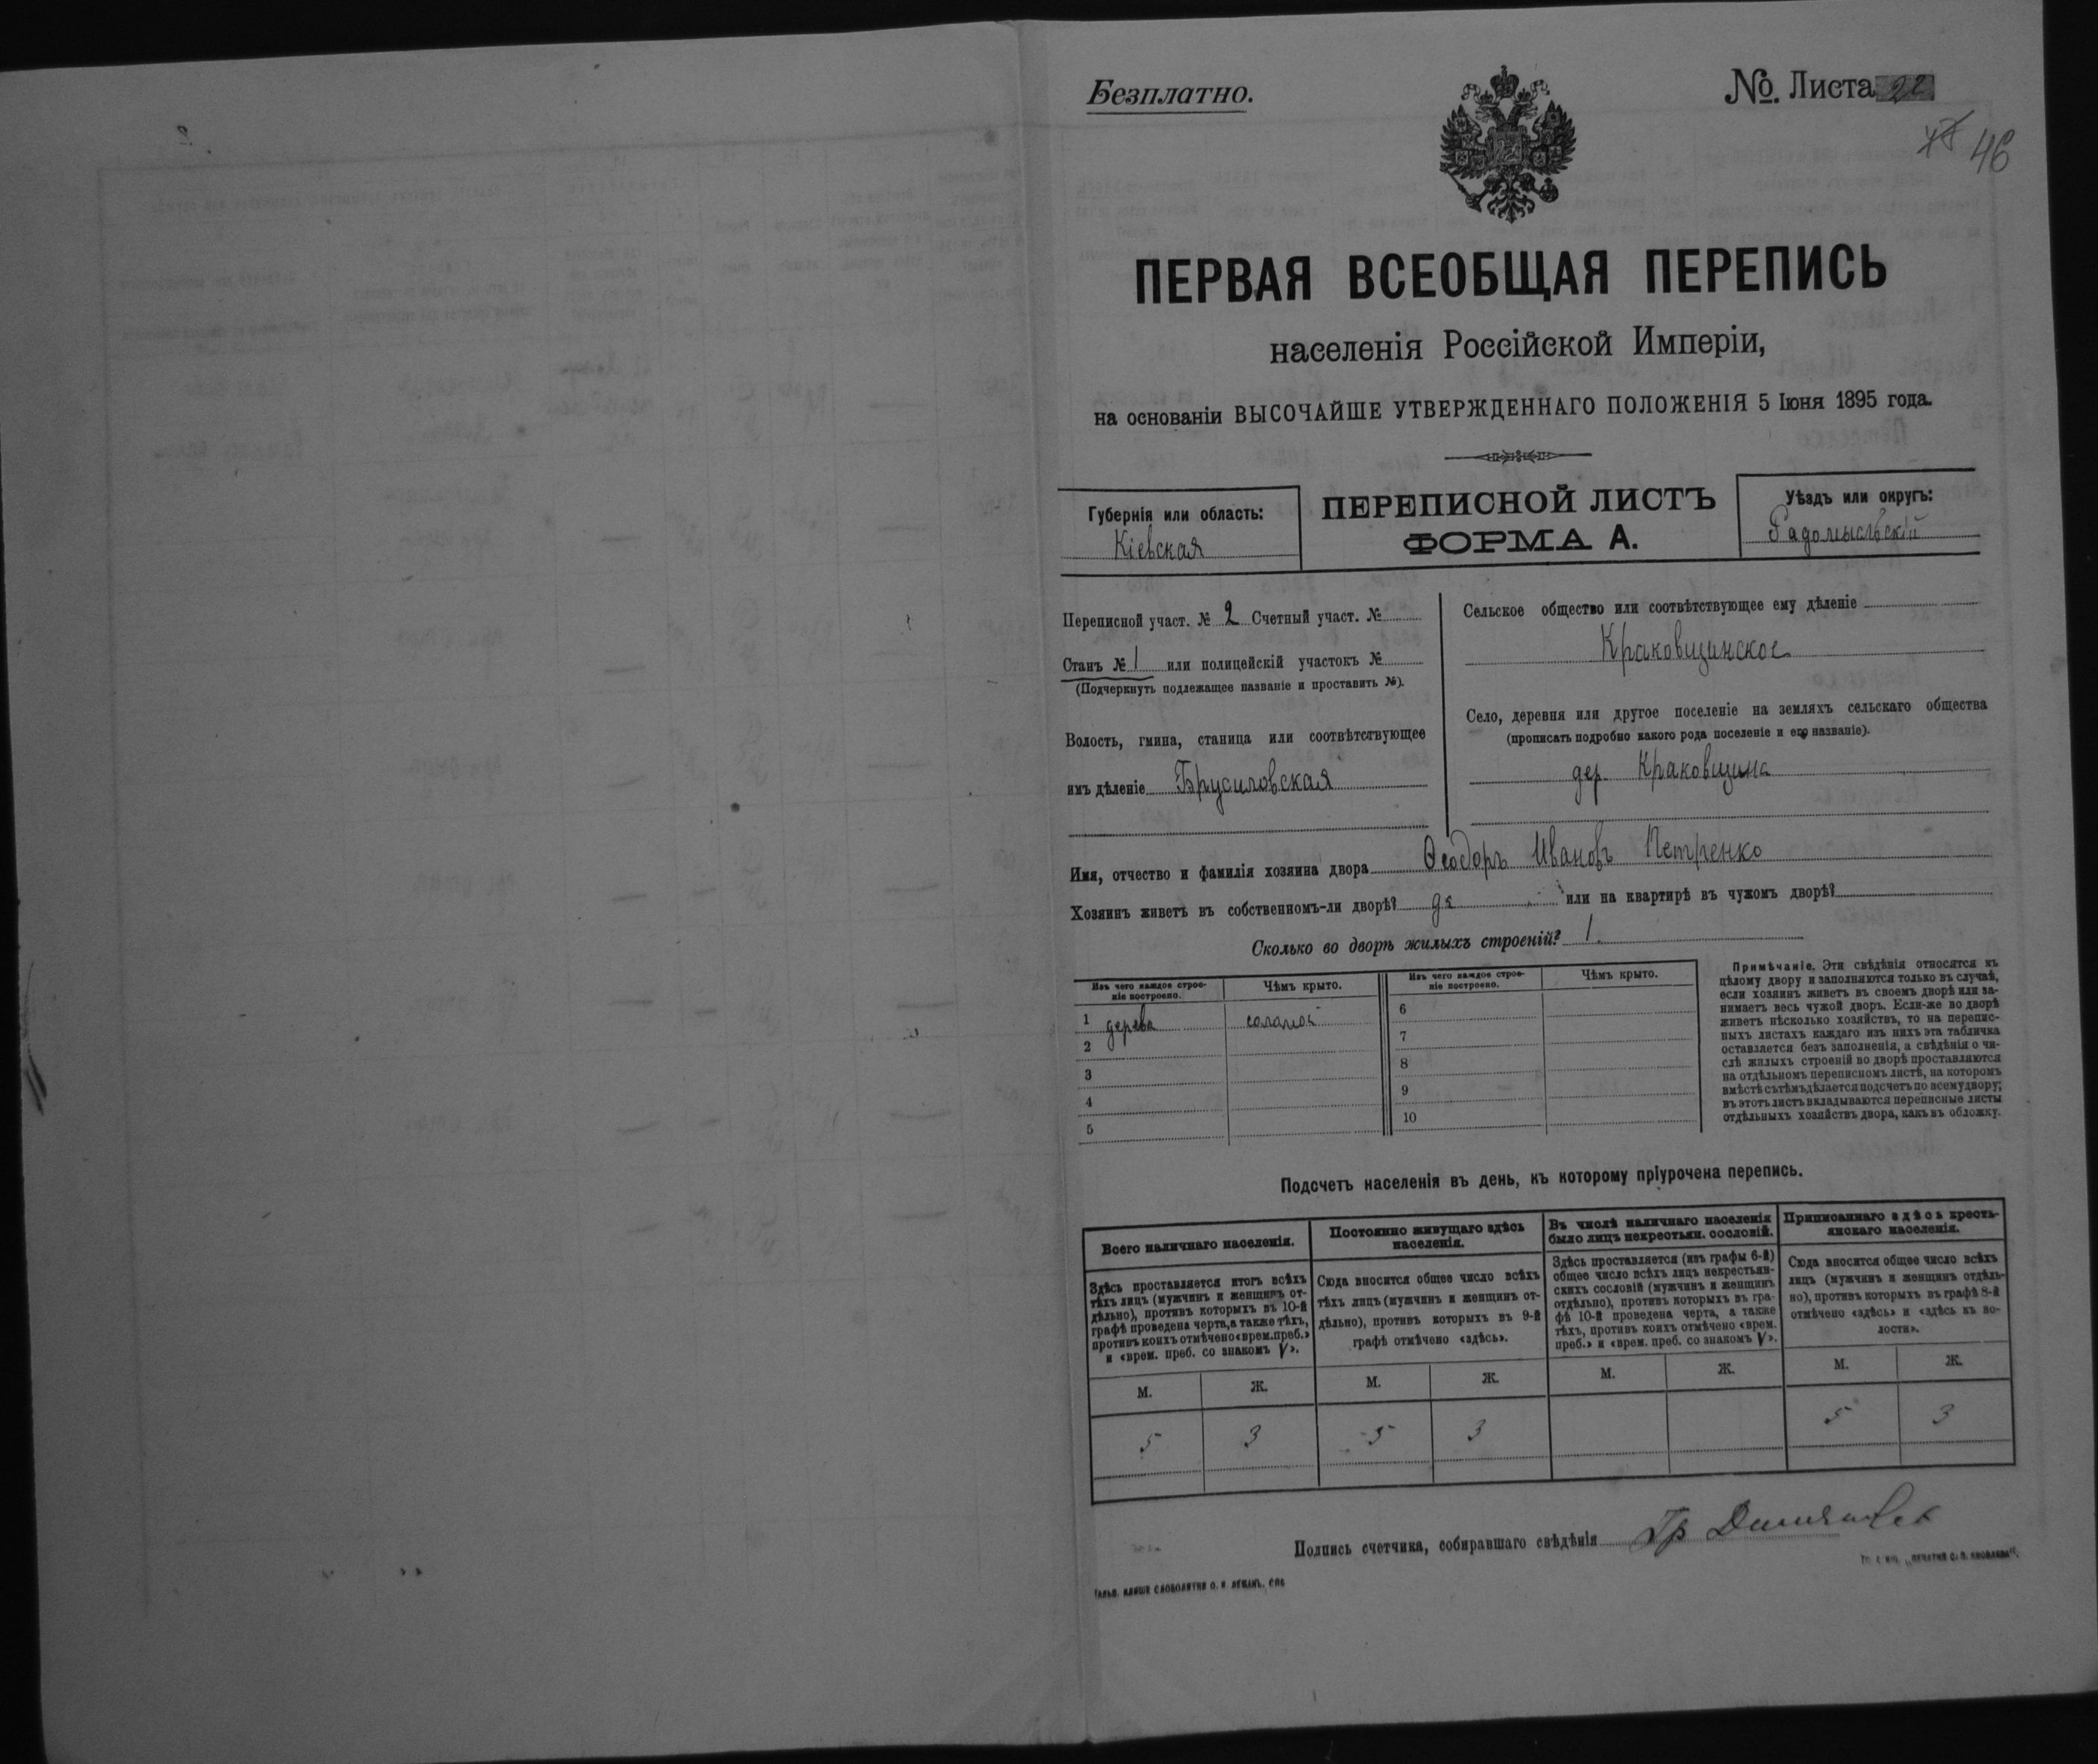 Безплатно.
№ Листа 22
46
ПЕРВАЯ ВСЕОБЩАЯ ПЕРЕПИСЬ
населенія Россійской Имперіи,
на основаніи ВЫСОЧАЙШЕ УТВЕРЖДЕННАГО ПОЛОЖЕНІЯ 5 Іюня 1895 года.
Губернія или область:
Кіевская
ПЕРЕПИСНОЙ ЛИСТЪ
ФОРМА А.
Уѣздъ или округъ:
Радомысльскій
Переписной участ. № 2 Счетный участ. №
Станъ № 1 или полицейскій участокъ №
(Подчеркнуть подлежащее названіе и проставить №).
Волость, гмина, станица или соотвѣтствующее
имъ дѣленіе Брусиловская
Сельское общество или соотвѣтствующее ему дѣленіе
Краковщинское
Село, деревня или другое поселеніе на земляхъ сельскаго общества
(прописать подробно какого рода поселеніе и его названіе).
дер. Краковщина
Имя, отчество и фамилія хозяина двора Ѳеодоръ Ивановъ Петренко
Хозяинъ живетъ въ собственномъ-ли дворѣ? да или на квартирѣ въ чужомъ дворѣ?
Сколько во дворѣ жилыхъ строеній? 1.
Изъ чего каждое строе-
ніе построено.
Чѣмъ крыто.
Изъ чего каждое строе-
ніе построено.
Чѣмъ крыто.
1 дерева соломой 6
2 7
3 8
4 9
5 10
Примѣчаніе. Эти свѣдѣнія относятся къ
цѣлому двору и заполняются только въ случаѣ,
если хозяинъ живетъ въ своемъ дворѣ или за-
нимаетъ весь чужой дворъ. Если-же во дворѣ
живетъ нѣсколько хозяйствъ, то на перепис-
ныхъ листахъ каждаго изъ нихъ эта табличка
оставляется безъ заполненія, а свѣдѣнія о чи-
слѣ жилыхъ строеній во дворѣ проставляются
на отдѣльномъ переписномъ листѣ, на которомъ
вмѣстѣ съ тѣмъ дѣлается подсчетъ по всему двору;
въ этотъ листъ вкладываются переписные листы
отдѣльныхъ хозяйствъ двора, какъ въ обложку.
Подсчетъ населенія въ день, къ которому пріурочена перепись.
Всего наличнаго населенія.
Здѣсь проставляется итогъ всѣхъ
тѣхъ лицъ (мужчинъ и женщинъ от-
дѣльно), противъ которыхъ въ 10-й
графѣ проведена черта, а также тѣхъ,
противъ коихъ отмѣчено «врем. преб.»
и «врем. преб. со знакомъ V».
Постоянно живущаго здѣсь
населенія.
Сюда вносится общее число всѣхъ
тѣхъ лицъ (мужчинъ и женщинъ от-
дѣльно), противъ которыхъ въ 9-й
графѣ отмѣчено «здѣсь».
Въ числѣ наличнаго населенія
было лицъ некрестьян. сословій.
Здѣсь проставляется (изъ графы 6-й)
общее число всѣхъ лицъ некрестьян-
скихъ сословій (мужчинъ и женщинъ
отдѣльно), противъ которыхъ въ гра-
фѣ 10-й проведена черта, а также
тѣхъ, противъ коихъ отмѣчено «врем.
преб.» и «врем. преб. со знакомъ V».
Приписаннаго здѣсь кресть-
янскаго населенія.
Сюда вносится общее число всѣхъ
лицъ (мужчинъ и женщинъ отдѣль-
но), противъ которыхъ въ графѣ 8-й
отмѣчено «здѣсь» и «здѣсь въ во-
лости».
М. Ж. М. Ж. М. Ж. М. Ж.
5 3 5 3 5 3
Подпись счетчика, собиравшаго свѣдѣнія Гр